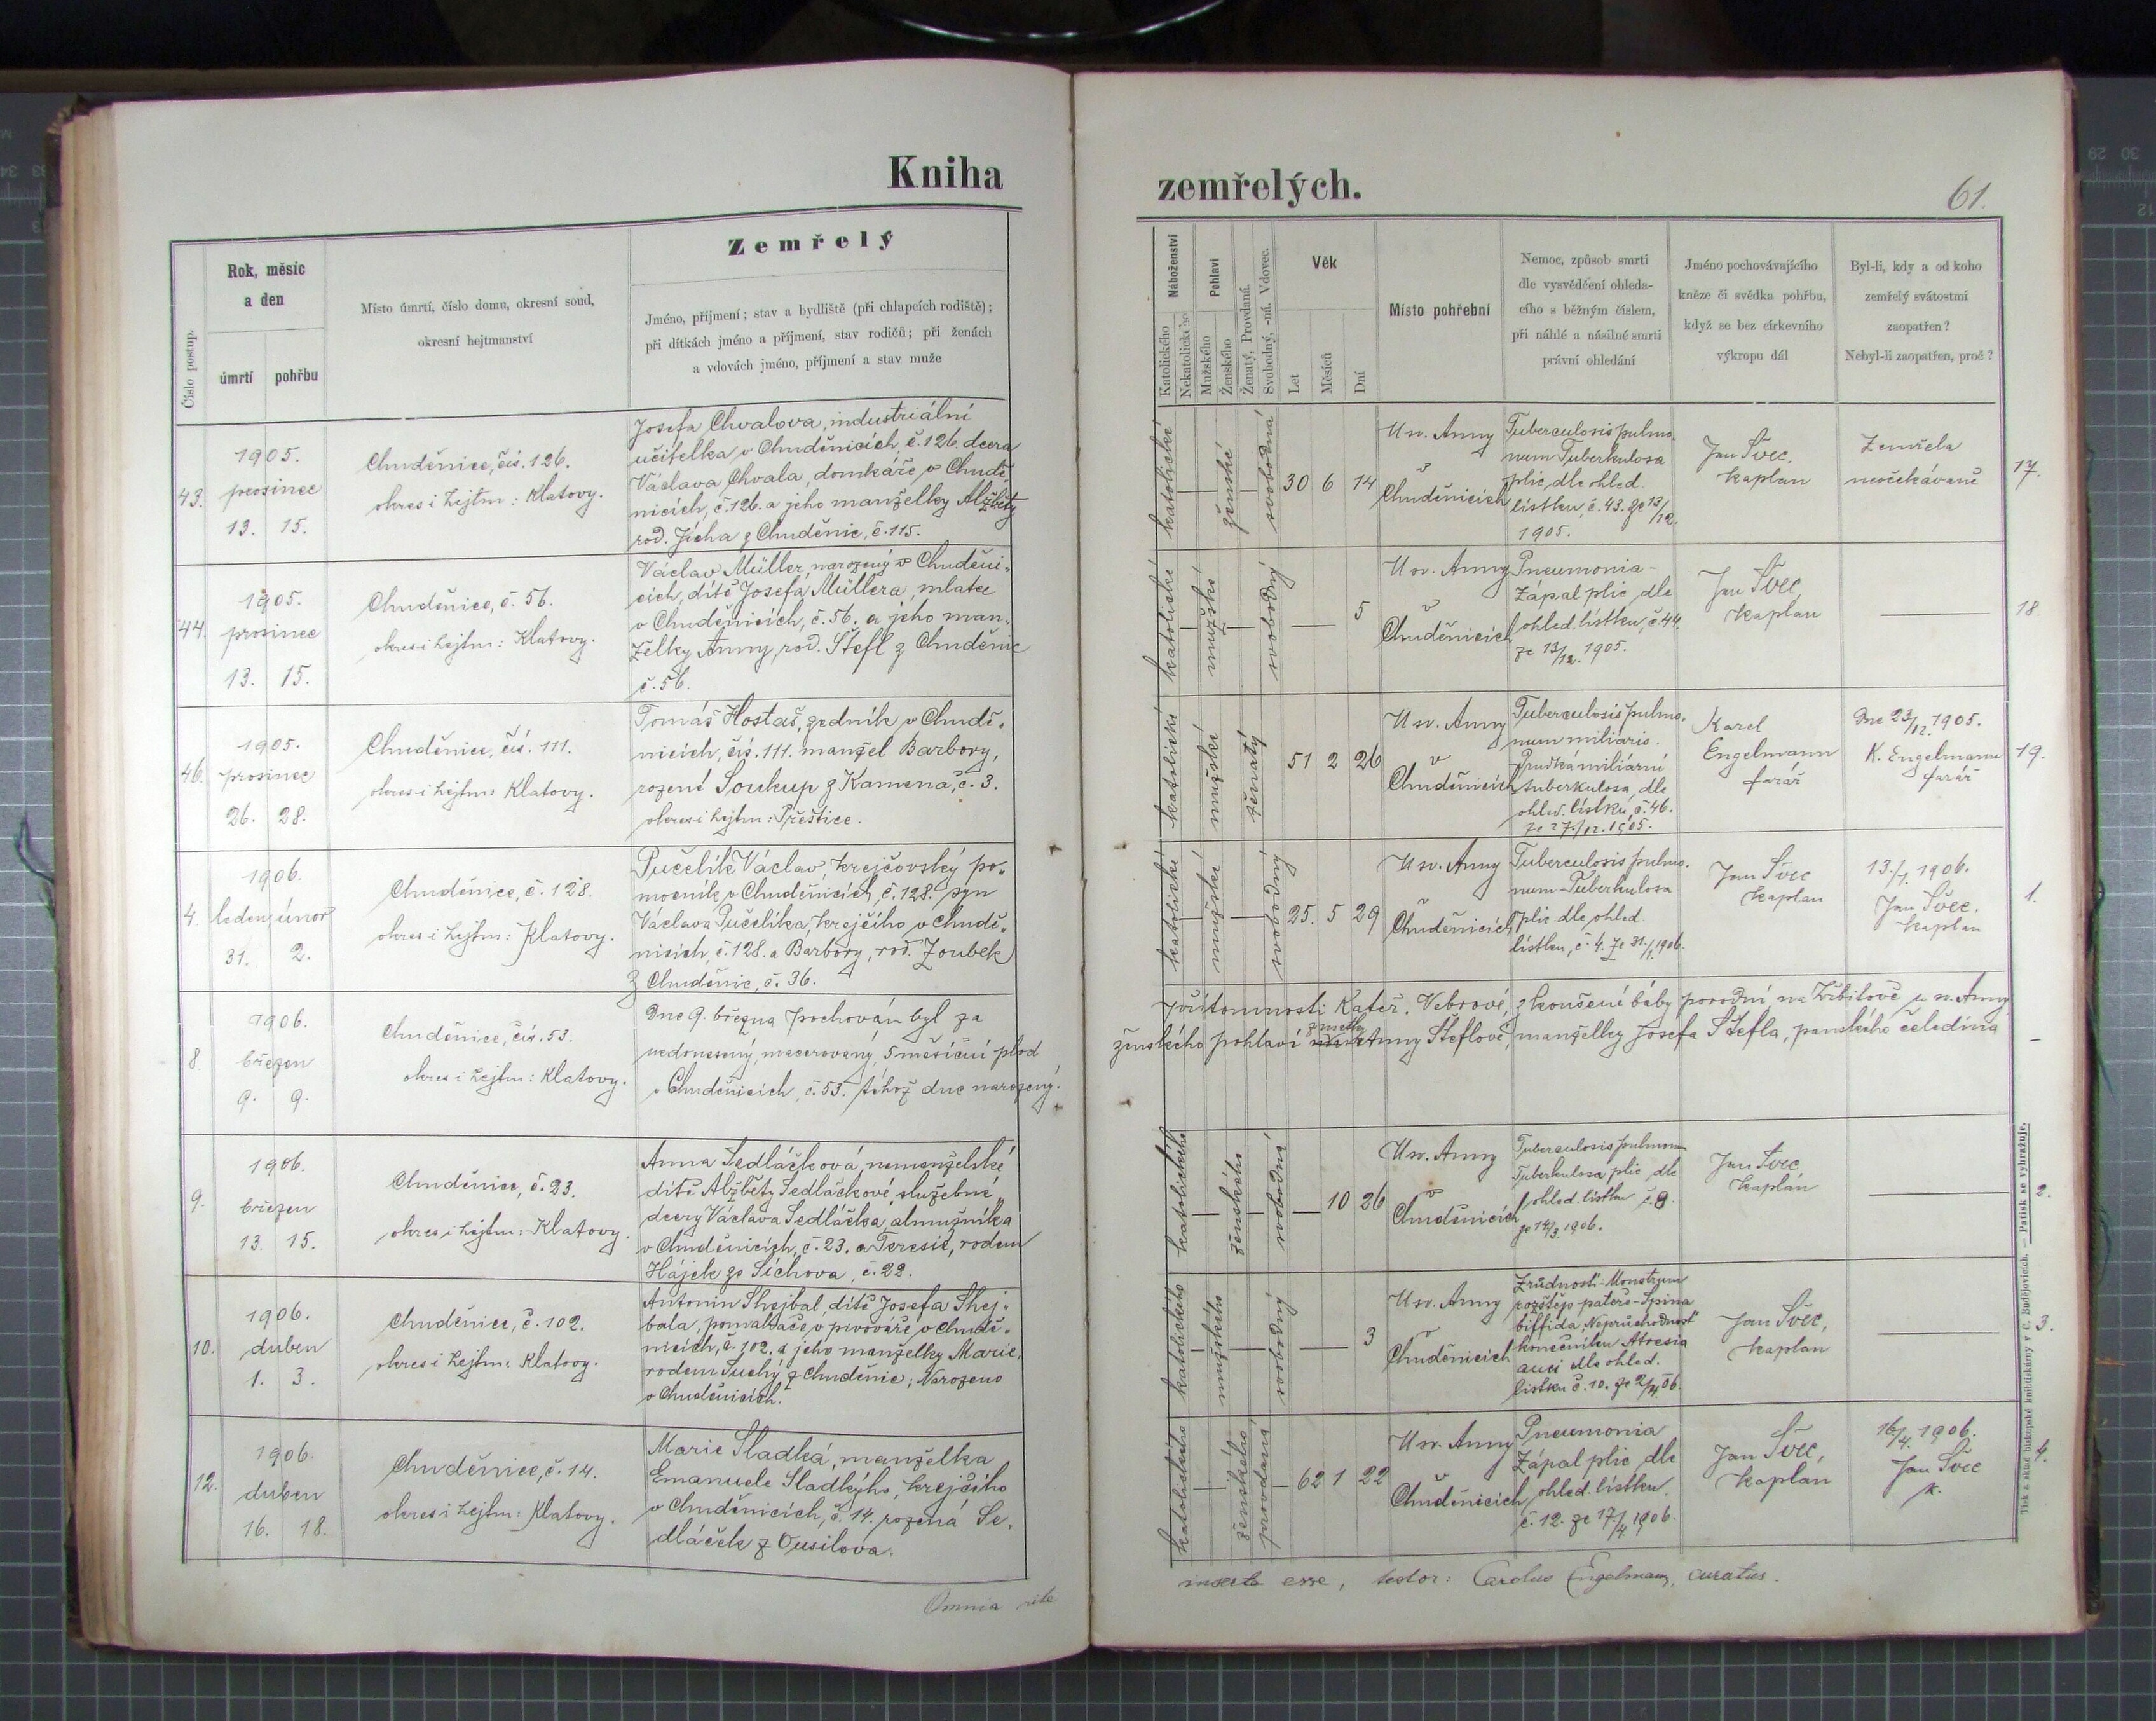 Kniha
zemřelých.
61.
Číslo postup.
Rok, měsíc
a den
úmrtí
pohřbu
Místo úmrtí, číslo domu, okresní soud,
okresní hejtmanství
Zemřelý
Jméno, příjmení; stav a bydliště (při chlapcích rodiště);
při dítkách jméno a příjmení, stav rodičů; při ženách
a vdovách jméno, příjmení a stav muže
Náboženství
Katolického
Nekatolického
Pohlaví
Mužského
Ženského
Ženatý, Provdaná.
Svobodný, -ná. Vdovec.
Věk
Let
Měsíců
Dní
Místo pohřební
Nemoc, způsob smrti
dle vysvědčení ohleda-
cího s běžným číslem,
při náhlé a násilné smrti
právní ohledání
Jméno pochovávajícího
kněze či svědka pohřbu,
když se bez církevního
výkropu dál
Byl-li, kdy a od koho
zemřelý svátostmi
zaopatřen?
Nebyl-li zaopatřen, proč?
43.
1905.
prosinec
13. 15.
Chuděnice, čís. 126.
okres i hejtm: Klatovy.
Josefa Chvalova, industriální
učitelka v Chuděnicích, č. 126 dcera
Václava Chvala, domkáře v Chudě-
nicích, č. 126. a jeho manželky Alžběty
rod. Jícha z Chuděnic, č. 115.
katolické
ženské
svobodná
30 6 14
U sv. Anny
v
Chuděnicích
Tuberculosis pulmo-
num Tuberkulosa
plic, dle ohled.
lístku, č. 43. ze 13/12.
1905.
Jan Švec,
kaplan
Zemřela
neočekávaně
17.
44.
1905.
prosinec
13. 15.
Chuděnice, č. 56.
okres i hejtm: Klatovy.
Václav Müller, narozený v Chuděni-
cích, dítě Josefa Müllera, mlatce
v Chuděnicích, č. 56. a jeho man-
želky Anny, rod. Štefl z Chuděnic
č. 56.
katolické
mužské
svobodný
5
U sv. Anny
v
Chuděnicích
Pneumonia -
Zápal plic, dle
ohled. lístku, č. 44.
ze 13/12. 1905.
Jan Švec,
kaplan
18.
46.
1905.
prosinec
26. 28.
Chuděnice, čís. 111.
okres i hejtm: Klatovy.
Tomáš Hostaš, zedník v Chudě-
nicích, čís. 111. manžel Barbory,
rozené Soukup z Kamena, č. 3.
okres i hejtm: Přeštice.
katolické
mužské
ženatý
51 2 26
U sv. Anny
v
Chuděnicích
Tuberculosis pulmo-
num miliaris.
Prudká miliární
tuberkulosa, dle
ohled. lístku, č. 46.
ze 27./12. 1905.
Karel
Engelmann
farář
Dne 23/12. 1905.
K. Engelmann
farář
19.
4.
1906.
leden, únor
31. 2.
Chuděnice, č. 128.
okres i hejtm: Klatovy.
Pučelík Václav, krejčovský po-
mocník v Chuděnicích, č. 128. syn
Václava Pučelíka, krejčího v Chudě-
nicích, č. 128. a Barbory, rod. Zoubek
z Chuděnic, č. 36.
katolické
mužské
svobodný
25. 5 29
U sv. Anny
v
Chuděnicích
Tuberculosis pulmo-
num - Tuberkulosa
plic dle ohled.
lístku, č. 4. ze 31./1. 1906.
Jan Švec
kaplan
13./1. 1906.
Jan Švec.
kaplan
1.
8.
1906.
březen
9. 9.
Chuděnice, čís. 53.
okres i hejtm: Klatovy.
Dne 9. března pochován byl za
přítomnosti Kateř. Vebrové, zkoušené báby porodní na hřbitově u sv. Anny
nedonesený, macerovaný, 5 měsíční plod
ženského pohlaví zmetky Anny Šteflové, manželky Josefa Štefla, panského čeledína
v Chuděnicích, č. 53. téhož dne narozený.
9.
1906.
březen
13. 15.
Chuděnice, č. 23.
okres i hejtm: Klatovy.
Anna Sedláčková, nemanželské
dítě Alžběty Sedláčkové, služebné,
dcery Václava Sedláčka, almužníka
v Chuděnicích, č. 23. a Teresie, rodem
Hájek ze Slchova, č. 22.
katolického
ženského
svobodná
10 26
U sv. Anny
v
Chuděnicích
Tuberculosis pulmonum
Tuberkulosa plic, dle
ohled. lístku č. 9.
ze 14/3. 1906.
Jan Švec,
kaplan
2.
10.
1906.
duben
1. 3.
Chuděnice, č. 102.
okres i hejtm: Klatovy.
Antonín Shejbal, dítě Josefa Shej-
bala, pomahače v pivováře v Chudě-
nicích, č. 102. a jeho manželky Marie,
rodem Suchý z Chuděnic; Narozeno
v Chuděnicích.
katolického
mužského
svobodný
3
U sv. Anny
v
Chuděnicích
Zrůdnost - Monstrum
rozštěp páteře - Spina
biffida, Neprůchodnost
konečníku Atresia
ani dle ohled.
lístku č. 10. ze 2/4. 06.
Jan Švec,
kaplan
3.
12.
1906.
duben
16. 18.
Chuděnice, č. 14.
okres i hejtm: Klatovy.
Marie Sladká, manželka
Emanuele Sladkýho, krejčího
v Chuděnicích, č. 14. rozená Se-
dláček z Ousilova.
katolického
ženského
provdaná
62 1 22
U sv. Anny
v
Chuděnicích
Pneumonia
Zápal plic dle
ohled. lístku,
č. 12. ze 17./4. 1906.
Jan Švec,
kaplan
16/4. 1906.
Jan Švec
k.
4.
Omnia rite
inserta esse, testor: Carolus Engelmann, curatus.
Tisk a sklad biskupské knihtiskárny v Č. Budějovicích. — Patisk se vyhražuje.